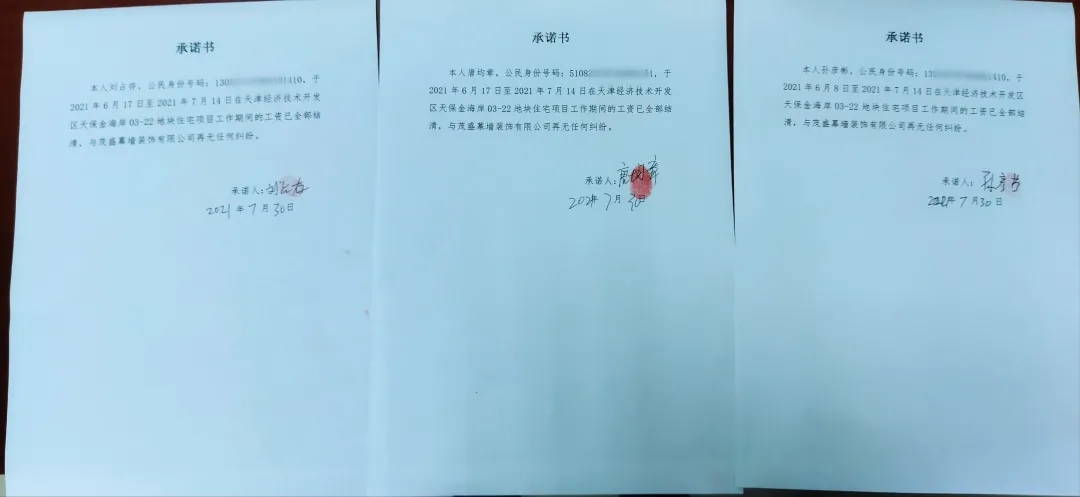 承诺书
本人刘占存，公民身份号码：130 1410，于
2021年6月17日至2021年7月14日在天津经济技术开发
区天保金海岸03-22地块住宅项目工作期间的工资已全部结
清，与茂盛幕墙装饰有限公司再无任何纠纷。
承诺人：刘占存
2021年7月30日
承诺书
本人唐均章，公民身份号码：5108 51，于
2021年6月17日至2021年7月14日在天津经济技术开发
区天保金海岸03-22地块住宅项目工作期间的工资已全部结
清，与茂盛幕墙装饰有限公司再无任何纠纷。
承诺人：唐均章
2021年7月30日
承诺书
本人孙彦彬，公民身份号码：13 1410，于
2021年6月8日至2021年7月14日在天津经济技术开发区
天保金海岸03-22地块住宅项目工作期间的工资已全部结
清，与茂盛幕墙装饰有限公司再无任何纠纷。
承诺人：孙彦
2021年7月30日